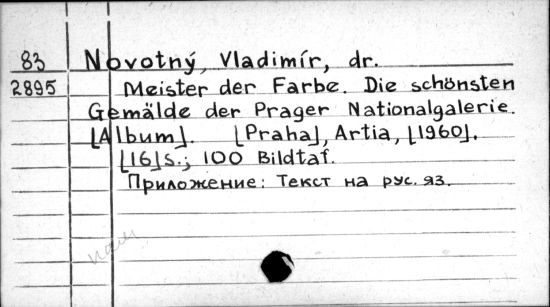 83 Novotný, Vladimír, dr.
2895 Meister der Farbe. Die schönsten
Gemälde der Prager Nationalgalerie.
[Album]. [Praha], Artia, [1960].
[16]s.; 100 Bildtaf.
Приложение: Текст на рус. яз.